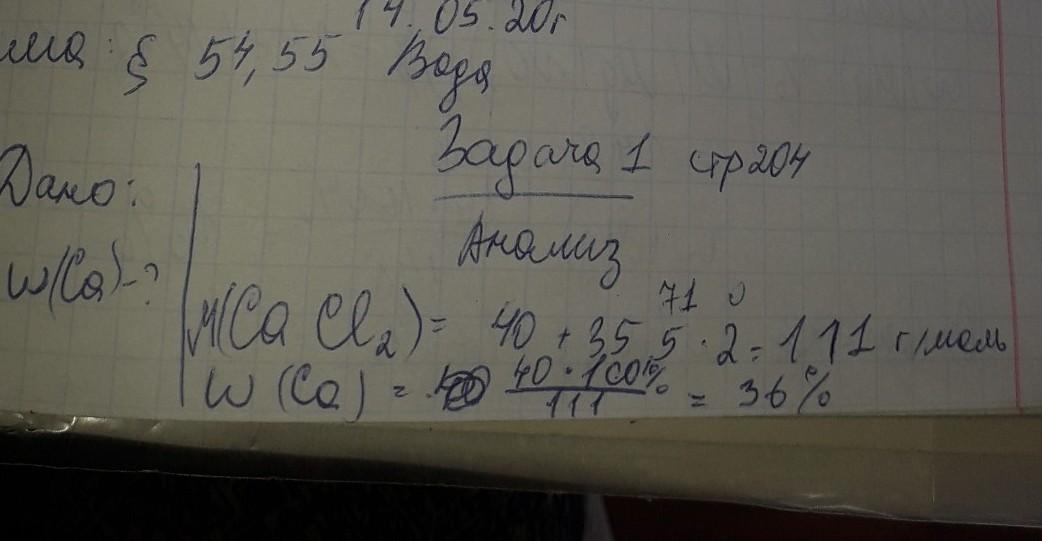 14.05.20г
ма: § 54,55 Вода
Задача 1 стр 204
Дано:
Анализ
W(Ca)-?
71
M(CaCl₂) = 40 + 35 5 · 2 = 111 г/моль
W(Ca) = 40 · 100% / 111 = 36%